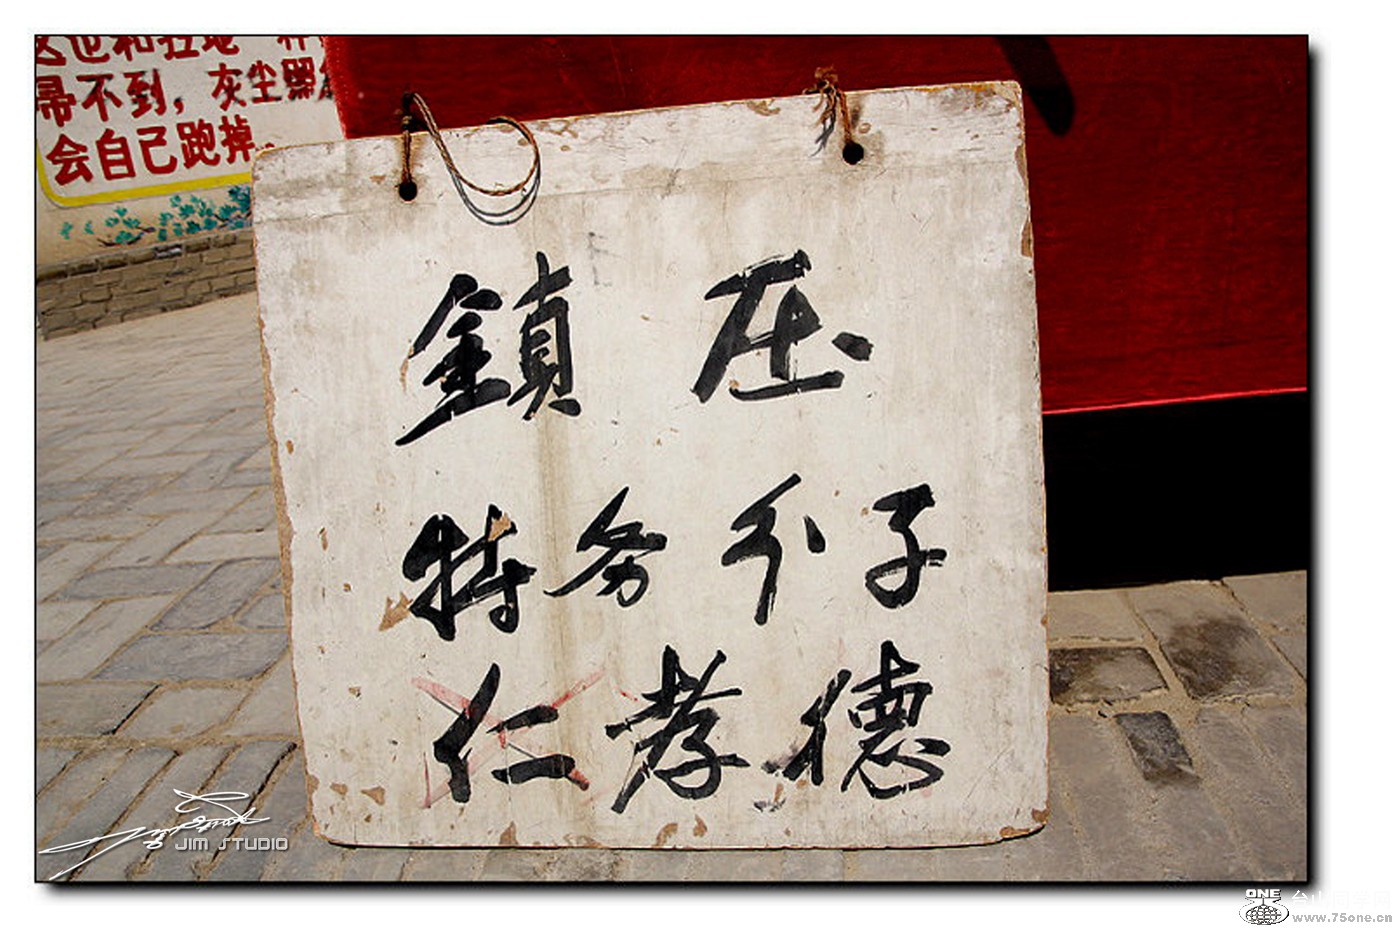 帚不到，灰尘照
会自己跑掉。
鎮压
特务分子
仁孝德
JIM STUDIO
ONE
台山同学网
www.75one.cn